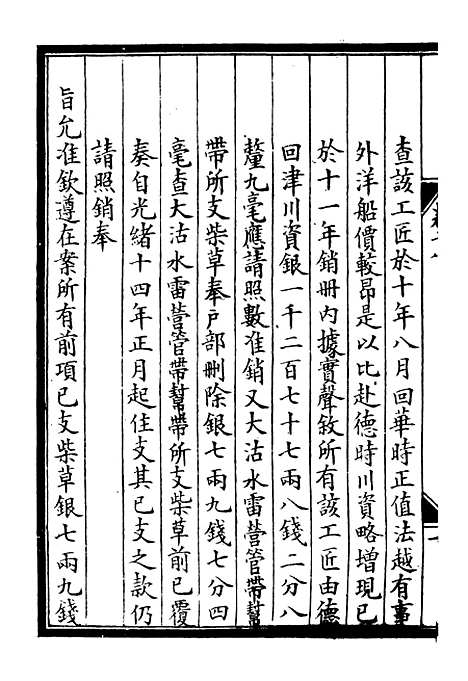 查該工匠於十年八月回華時正值法越有事
外洋船價較昂是以比赴德時川資略增現已
於十一年銷册內據實聲敘所有該工匠由德
回津川資銀一千二百七十七兩八錢二分八
釐九毫應請照數准銷又大沽水雷營管帶幫
帶所支柴草奉戶部刪除銀七兩九錢七分四
毫查大沽水雷營管帶幫帶所支柴草前已覆
奏自光緒十四年正月起住支其已支之款仍
請照銷奉
旨允准欽遵在案所有前項已支柴草銀七兩九錢